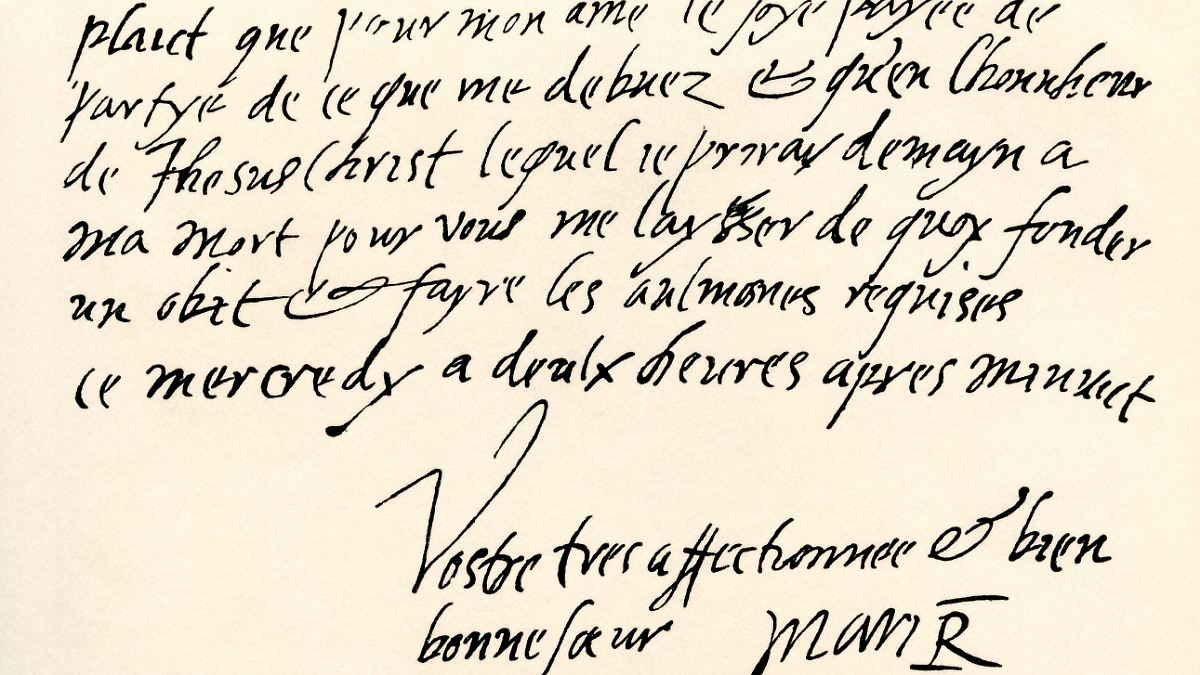 plaict que pour mon ame ie soye payée de
partye de ce que me debuez & qu'en lhonnheur
de Jhesus Christ lequel ie priray demayn a
ma mort pour vous me laysser de quoy fonder
un obit & fayre les aulmones requises
ce mercredy a deulx heures apres minuict
Vostre tres affectionnee & bien
bonne sœur Mari R